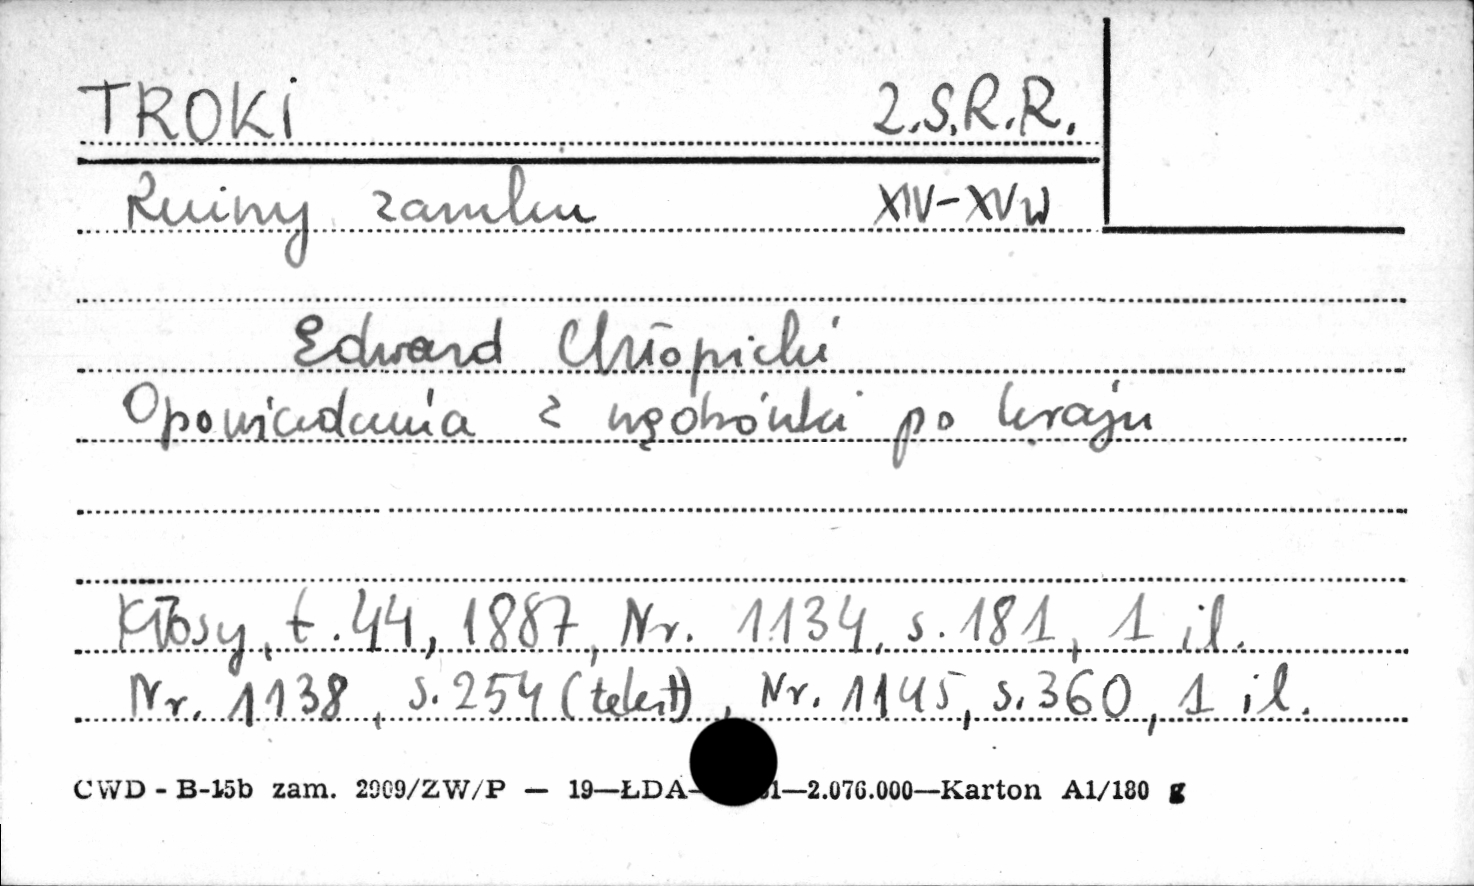 TROKI 2.S.R.R.
Ruiny zamku XIV-XV w
Edward Chłopicki
Opowiadania z wędrówki po kraju
Kłosy, t.44, 1887, Nr. 1134, s.181, 1 il.
Nr. 1138, s.254 (tekst), Nr. 1145, s.360, 1 il.
CWD - B-15b zam. 2909/ZW/P — 19—ŁDA— 1—2.076.000—Karton A1/180 g